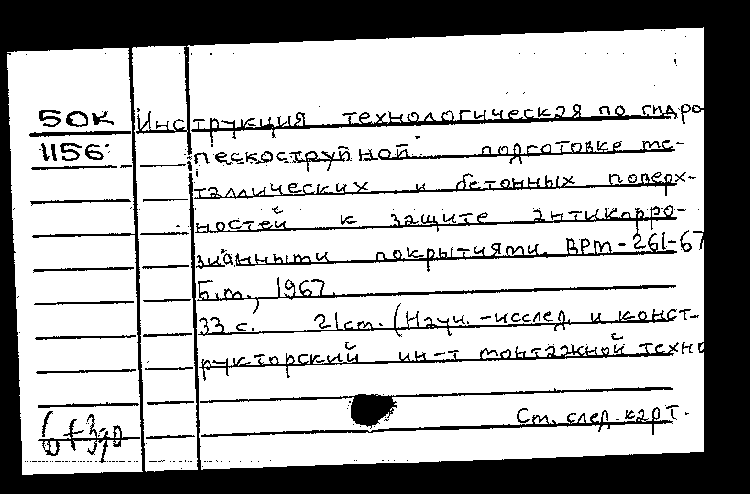 50К Инструкция технологическая по гидро-
1156 пескоструйной подготовке ме-
таллических и бетонных поверх-
ностей к защите антикорро-
зийными покрытиями. ВРМ-261-67
Б.м., 1967.
33 с. 21см. (Науч.-исслед. и конст-
рукторский ин-т монтажной техно
См. след. карт.